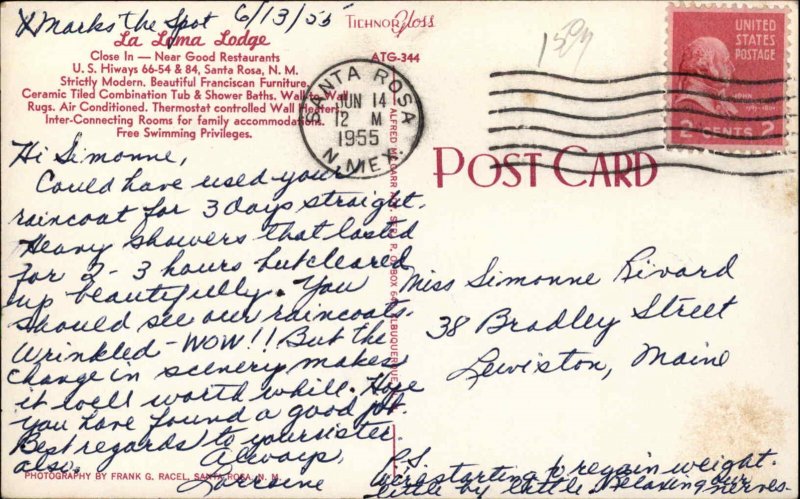 X Marks the Spot 6/13/55
TICHNOR Gloss
La Loma Lodge
Close In — Near Good Restaurants
U. S. Hiways 66-54 & 84, Santa Rosa, N. M.
Strictly Modern. Beautiful Franciscan Furniture.
Ceramic Tiled Combination Tub & Shower Baths. Wall to Wall
Rugs. Air Conditioned. Thermostat controlled Wall Heaters
Inter-Connecting Rooms for family accommodations.
Free Swimming Privileges.
ATG-344
SANTA ROSA
JUN 14
12 M
1955
N. MEX.
UNITED
STATES
POSTAGE
JOHN
2 CENTS 2
POST CARD
Hi Simonne,
Could have used your
raincoat for 3 days straight.
Heavy showers that lasted
for 2-3 hours but cleared
up beautifully. You
should see our raincoats.
Wrinkled - WOW!! But the
change in scenery makes
it well worth whill. Hope
you have found a good job.
Best regards to your sister
also. Always,
Lorraine
PHOTOGRAPHY BY FRANK G. RACEL, SANTA ROSA, N. M.
Miss Simonne Rivard
38 Bradley Street
Lewiston, Maine
PS
We're starting to regain weight.
little by little. Relaxing our nerves-